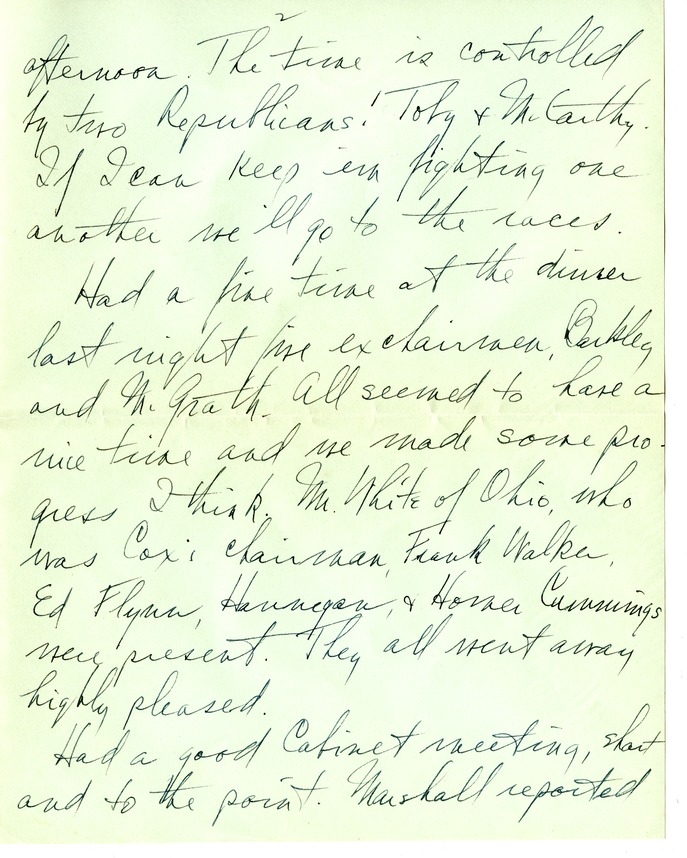 2
afternoon. The time is controlled
by two Republicans! Toby & McCarthy.
If I can keep 'em fighting one
another we'll go to the races.
Had a fine time at the dinner
last night five exchairmen, Barkley
and McGrath. All seemed to have a
nice time and we made some pro-
gress I think. Mr. White of Ohio, who
was Cox's chairman, Frank Walker,
Ed Flynn, Hannegan, & Homer Cummings
were present. They all went away
highly pleased.
Had a good Cabinet meeting, short
and to the point. Marshall reported